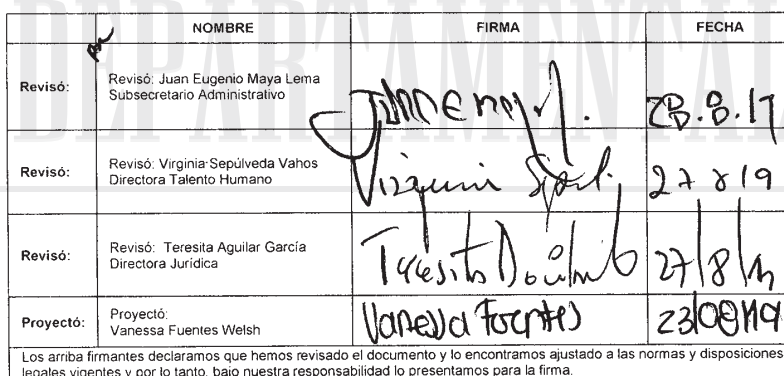 DEPARTAMENTAL
NOMBRE FIRMA FECHA
Revisó: Revisó: Juan Eugenio Maya Lema
Subsecretario Administrativo
Revisó: Revisó: Virginia Sepúlveda Vahos
Directora Talento Humano 27 8 19
Revisó: Revisó: Teresita Aguilar García
Directora Jurídica 27/8/19
Proyectó: Proyectó:
Vanessa Fuentes Welsh Vanessa Fuentes 23/08/19
Los arriba firmantes declaramos que hemos revisado el documento y lo encontramos ajustado a las normas y disposiciones
legales vigentes y por lo tanto, bajo nuestra responsabilidad lo presentamos para la firma.